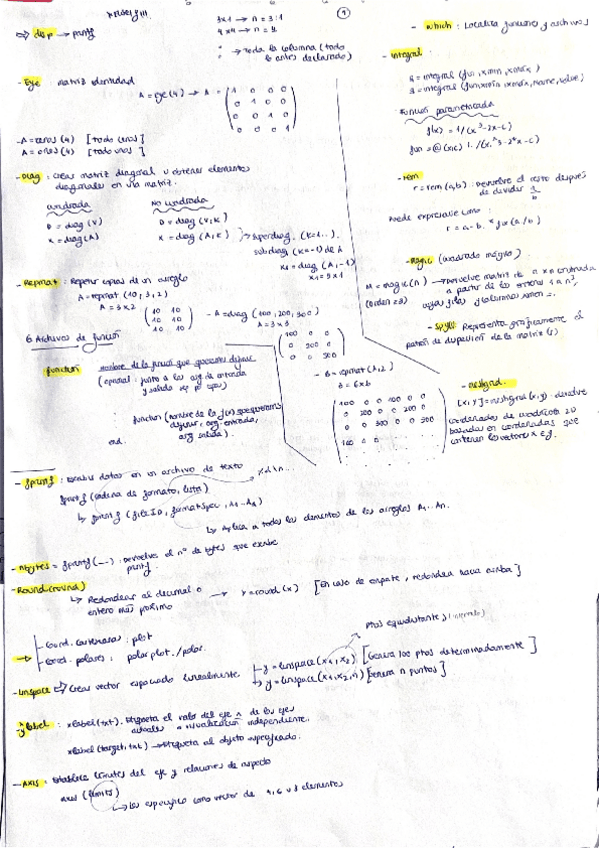 ①
⇒ disp → printf
3x1 → n = 3:1
4x4 → n = 4
: → Toda la columna (todo lo antes declarado)
- Eye matriz identidad
A = eye(4) → A =
1 0 0 0
0 1 0 0
0 0 1 0
0 0 0 1
- A = ceros (4) [todo ceros]
A = ones (4) [todo unos]
- Diag : Crear matriz diagonal u obtener elementos
diagonales en una matriz.
cuadrada
No cuadrada
D = diag (V)
D = diag (V,K)
x = diag(A)
x = diag (A,K)
Superdiag. (K=1..).
subdiag (K=-1) de A
x1 = diag (A,-1)
x1 = 3x1
- Repmat : Repetir copias de un arreglo
A = repmat (10, 3, 2)
A = 3x2
10 10
10 10
10 10
- A = diag (100, 200, 300)
A = 3x3
100 0 0
0 200 0
0 0 300
- B = repmat (A,2)
B = 6x6
100 0 0 100 0 0
0 200 0 0 200 0
0 0 300 0 0 300
100 0 0
6 Archivos de función
function nombre de la función que queremos definir
(opcional : junto a los arg de entrada
y salida)
function (nombre de la f(x) que queremos
definir, arg. entrada,
arg salida).
end.
- which : Localiza funciones y archivos
- integral :
q = integral (fun, xmin, xmax)
q = integral (fun, xmin, xmax, name, value)
Función parametrizada
f(x) = 1/(x^3-2x-c)
fun = @(x,c) 1./(x.^3-2*x-c)
- rem
r = rem (a,b) : Devuelve el resto después
de dividir a/b
Puede expresarse como :
r = a - b.*fix(a/b)
- Magic (cuadrado mágico)
M = magic(n) → Devuelve matriz de n x n construida
a partir de los enteros 1 a n²,
(orden ≥3) cuyas filas y columnas suman =.
- Spy(S): Representa gráficamente el
patrón de dispersión de la matriz (S)
- meshgrid.
[X,Y] = meshgrid (x,y) : devuelve
coordenadas de cuadrícula 2D
basadas en coordenadas que
contienen los vectores x e y.
- fprintf : Escribir datos en un archivo de texto
%d \n...
fprintf (cadena de formato, lista)
↳ fprintf (fileID, formatSpec, A1-An)
↳ Aplica a todos los elementos de los arreglos A1...An.
- nbytes = fprintf(---) : Devuelve el nº de bytes que escribe
printf.
- Round(round)
↳ Redondear al decimal o
entero más próximo
→ Y = round (x) [En caso de empate, redondea hacia arriba]
→ - Coord. cartesianas : plot
- Coord. polares : polarplot. / polar.
Ptos equidistante s/ intervalo)
- linspace ⇒ Crear vector espaciado linealmente
y = linspace (x1, x2) [Genera 100 ptos determinadamente]
→ y = linspace (x1, x2, n) [Genera n puntos]
- xlabel : xlabel(txt). Etiqueta el valor del eje x de los ejes
ylabel actuales o visualización independiente.
xlabel (target, txt) → Etiqueta al objeto especificado.
- Axis : Establece límites del eje y relaciones de aspecto
axis (limits)
↳ Los especifica como vector de 4, 6 u 8 elementos